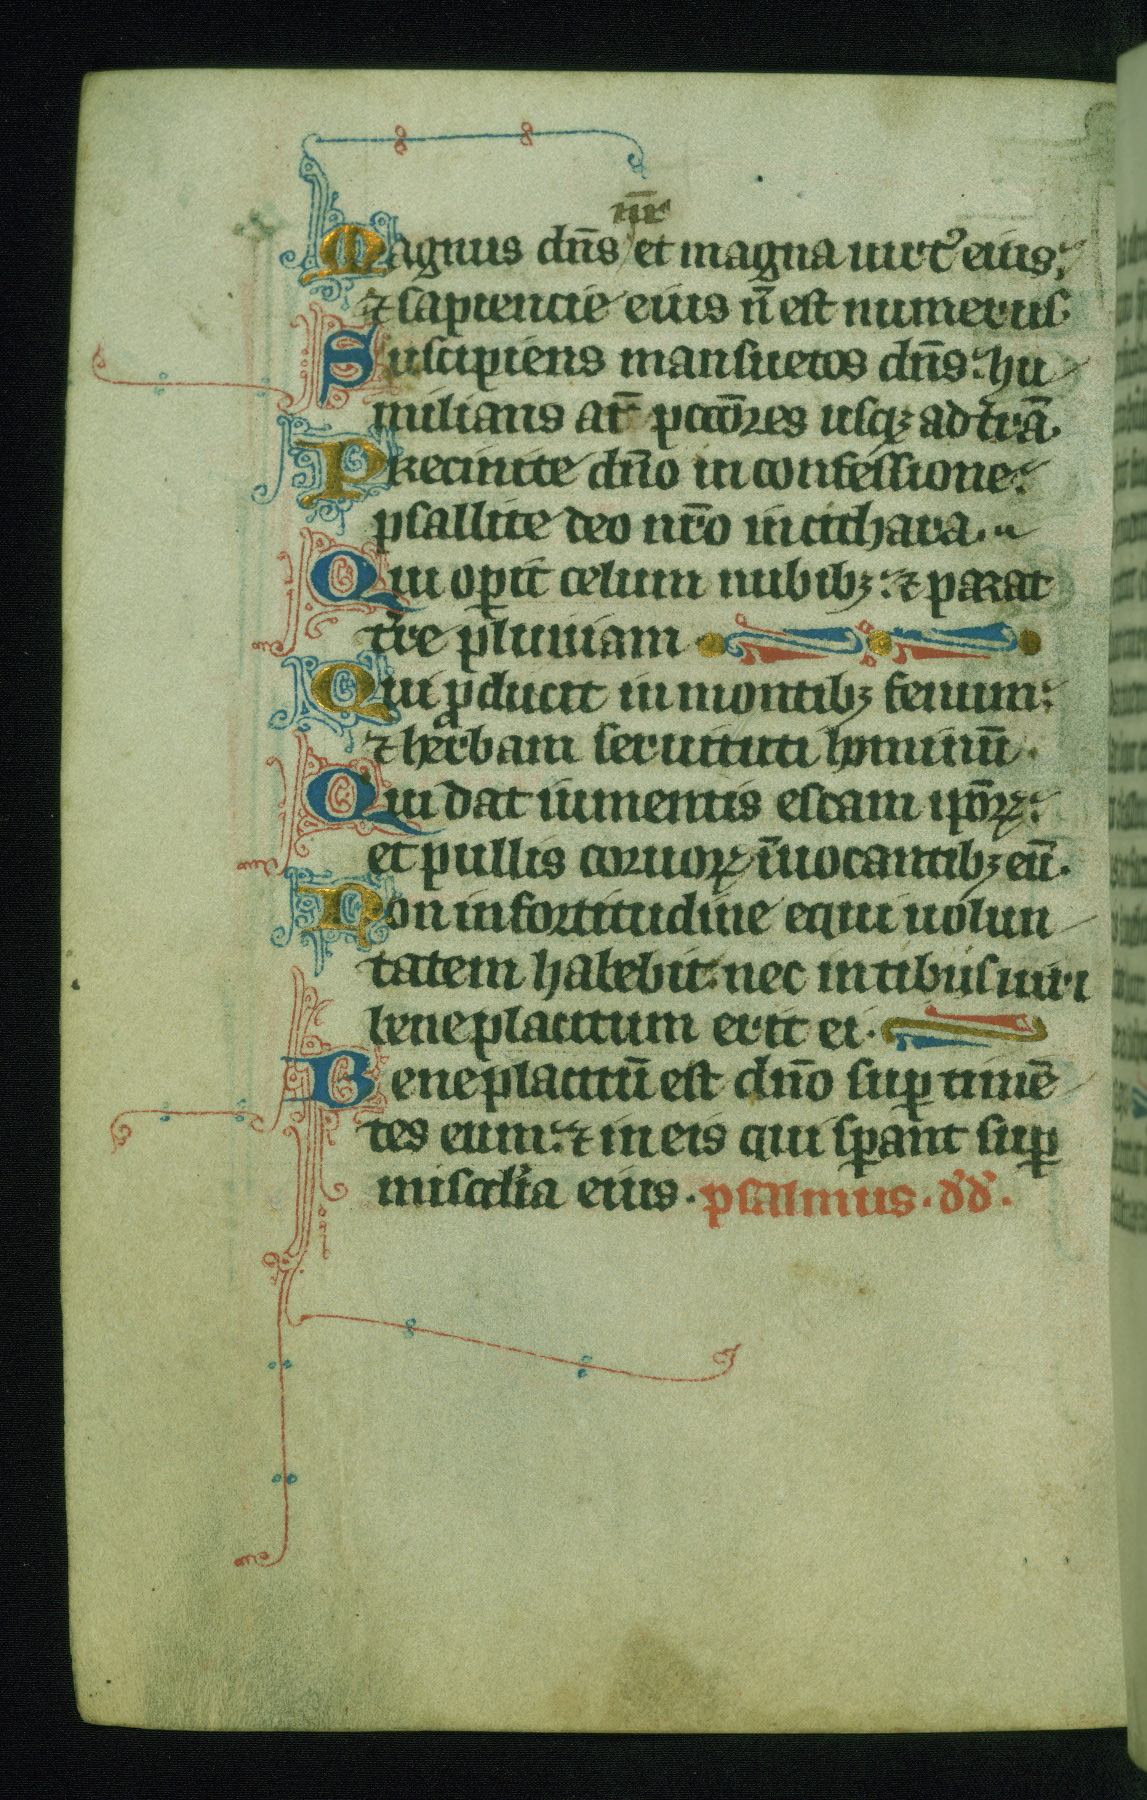 nr̄
Magnus dn̄s et magna uirt᾽ eius:
⁊ sapiencie eius n̄ est numerus
Suscipiens mansuetos dn̄s: hu
milians aūt pccōres usqꝫ ad t̄rā.
Precinite dn̄o in confessione:
psallite deo nr̄o in cithara.
Qui oꝑit celum nubibꝫ: ⁊ parat
t̄re pluuiam
Qui ꝓducit in montibꝫ fenum:
⁊ herbam seruituti hominū.
Qui dat iumentis escam ip̄oꝝ:
et pullis coruoꝝ īuocantibꝫ eū.
Non in fortitudine equi uolun
tatem habebit: nec in tibiis uiri
beneplacitum erit ei.
Beneplacitū est dn̄o suꝑ timē
tes eum: ⁊ in eis qui sꝑant suꝑ
misc̄dia eius. psalmus. dd.